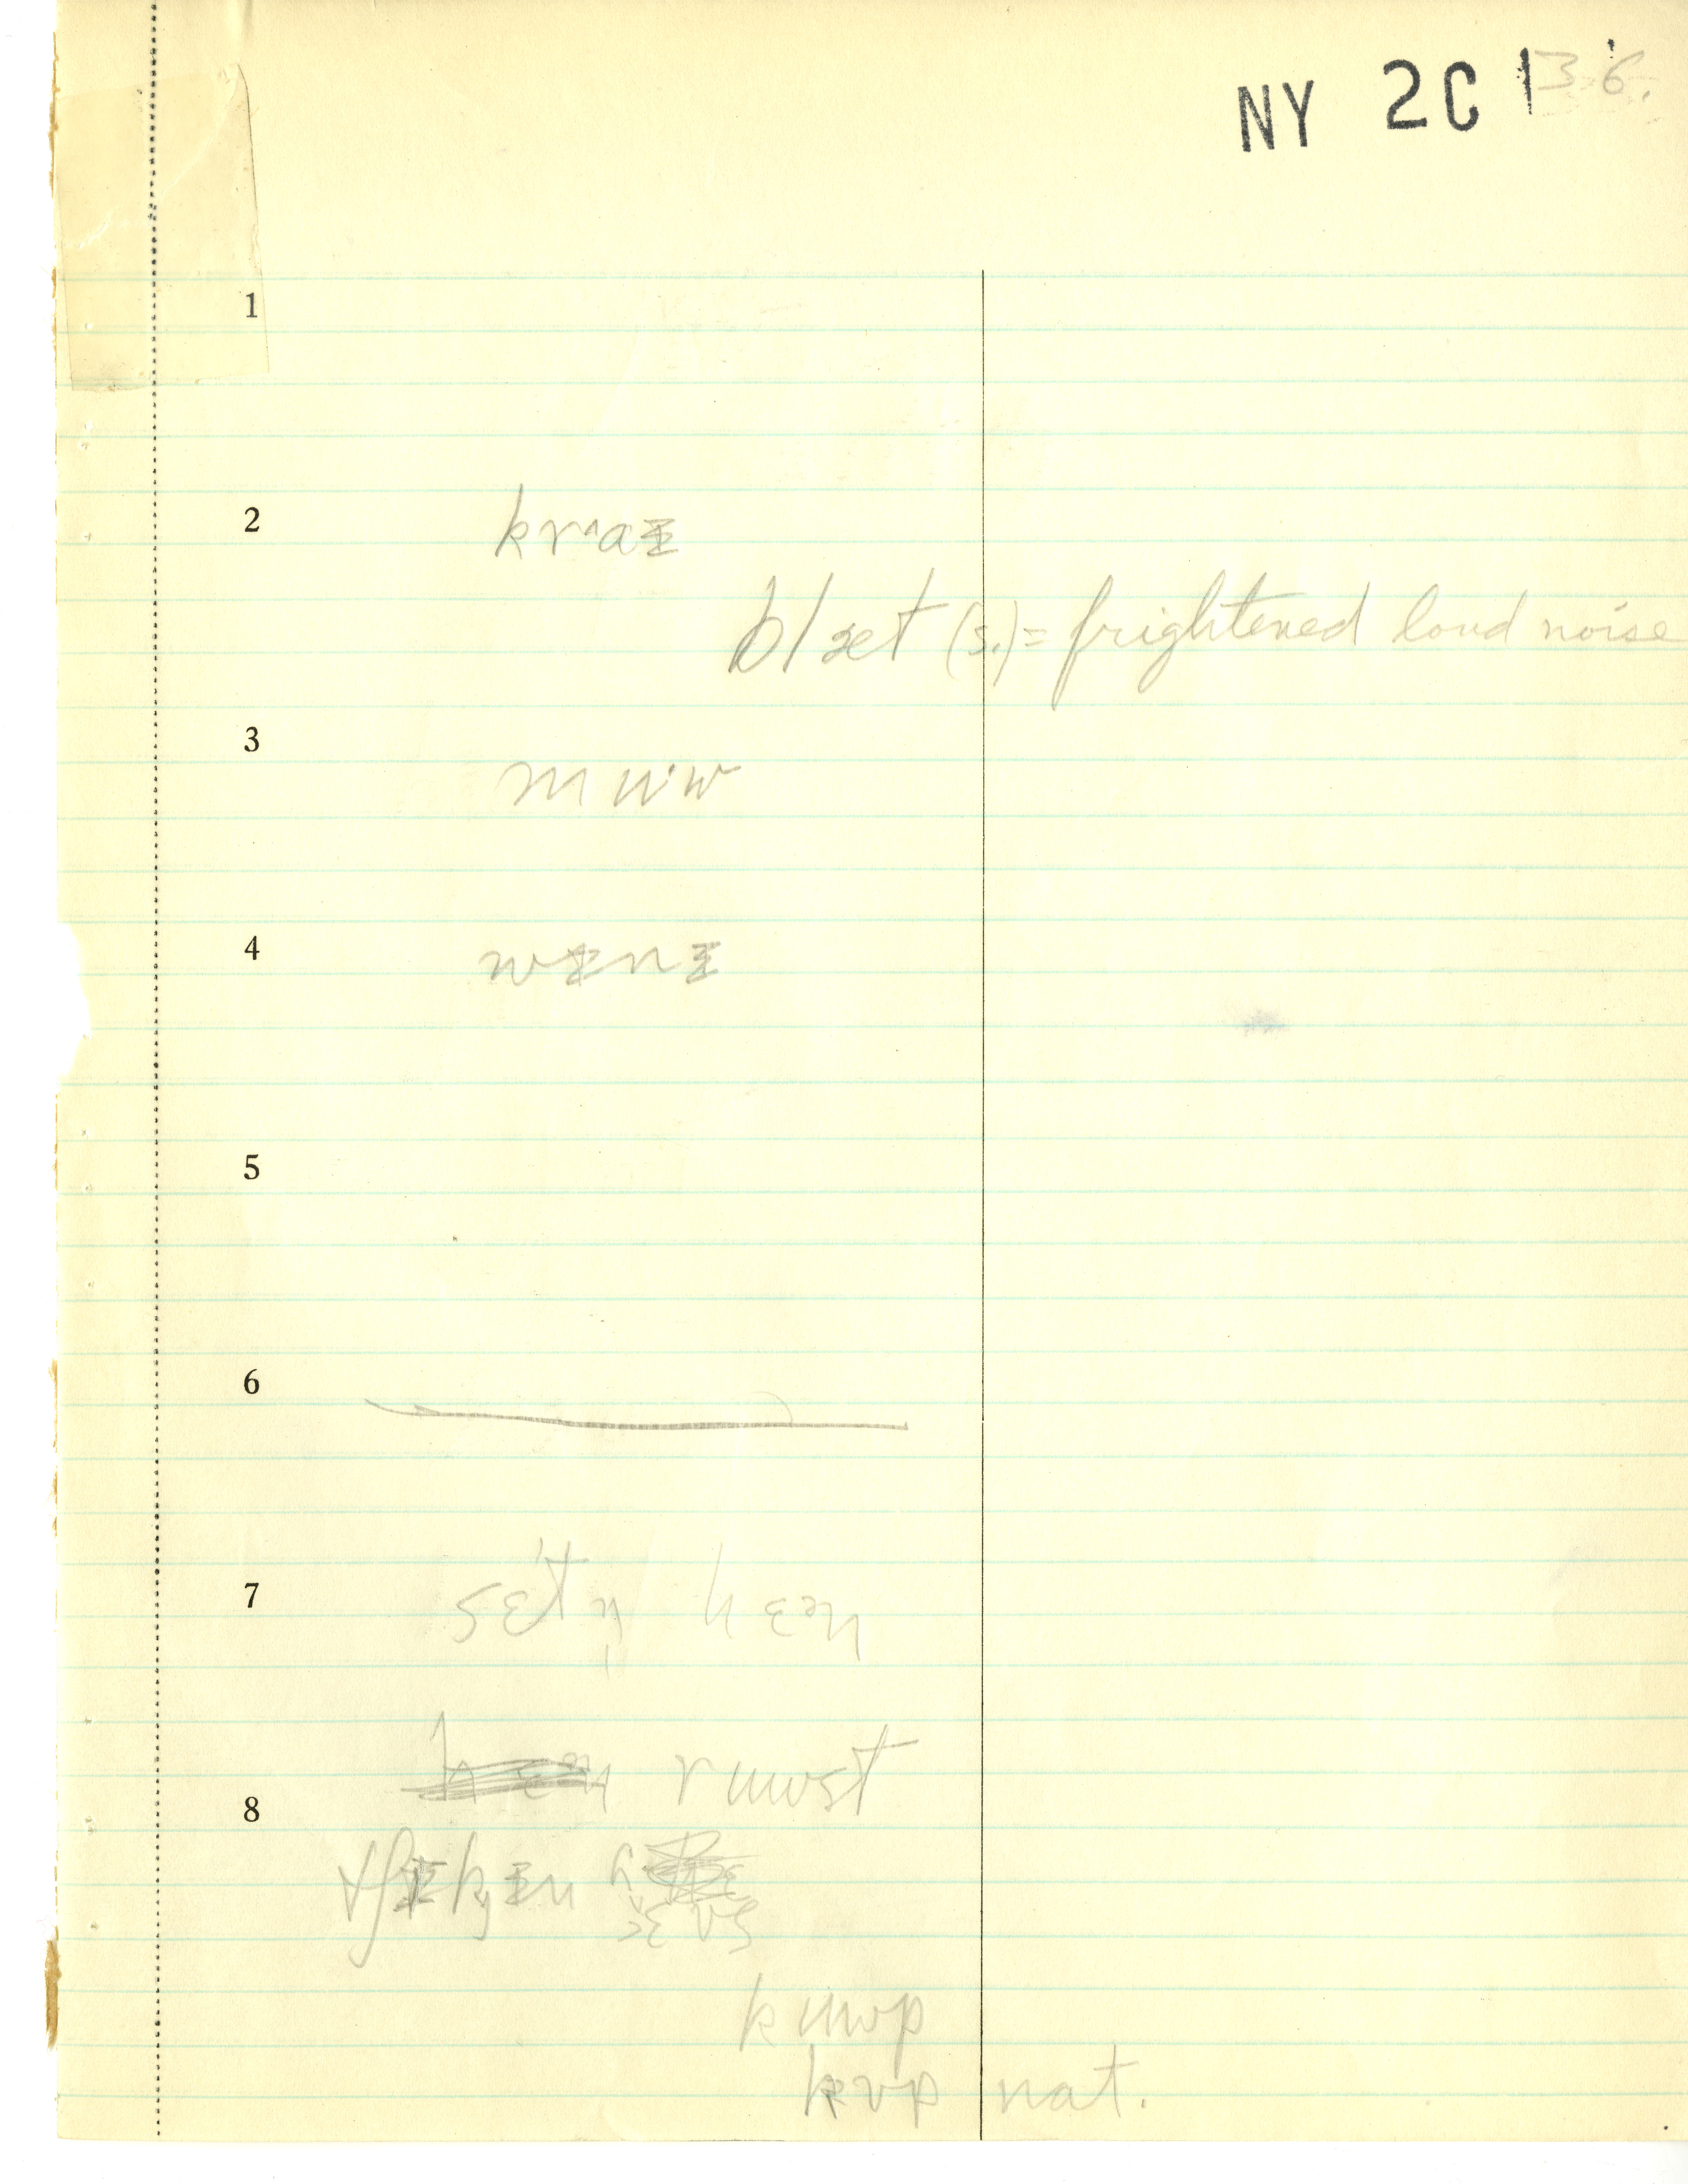 NY 2C 1 36.
1
2 krᶺaᵻ
blæt (s.) = frightened loud noise
3 mu·w
4 wᵻnᵻ
5
6
7 sɛ't n̩ hɛən
ruwst
8
kuwp
kʊp nat.